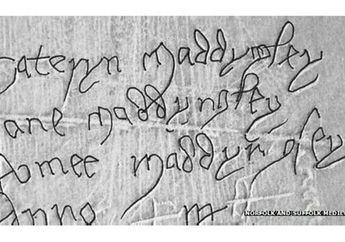 cateryn maddymsley
ane maddynsley
omee maddynsley
nno m
NORFOLK AND SUFFOLK MEDIEV